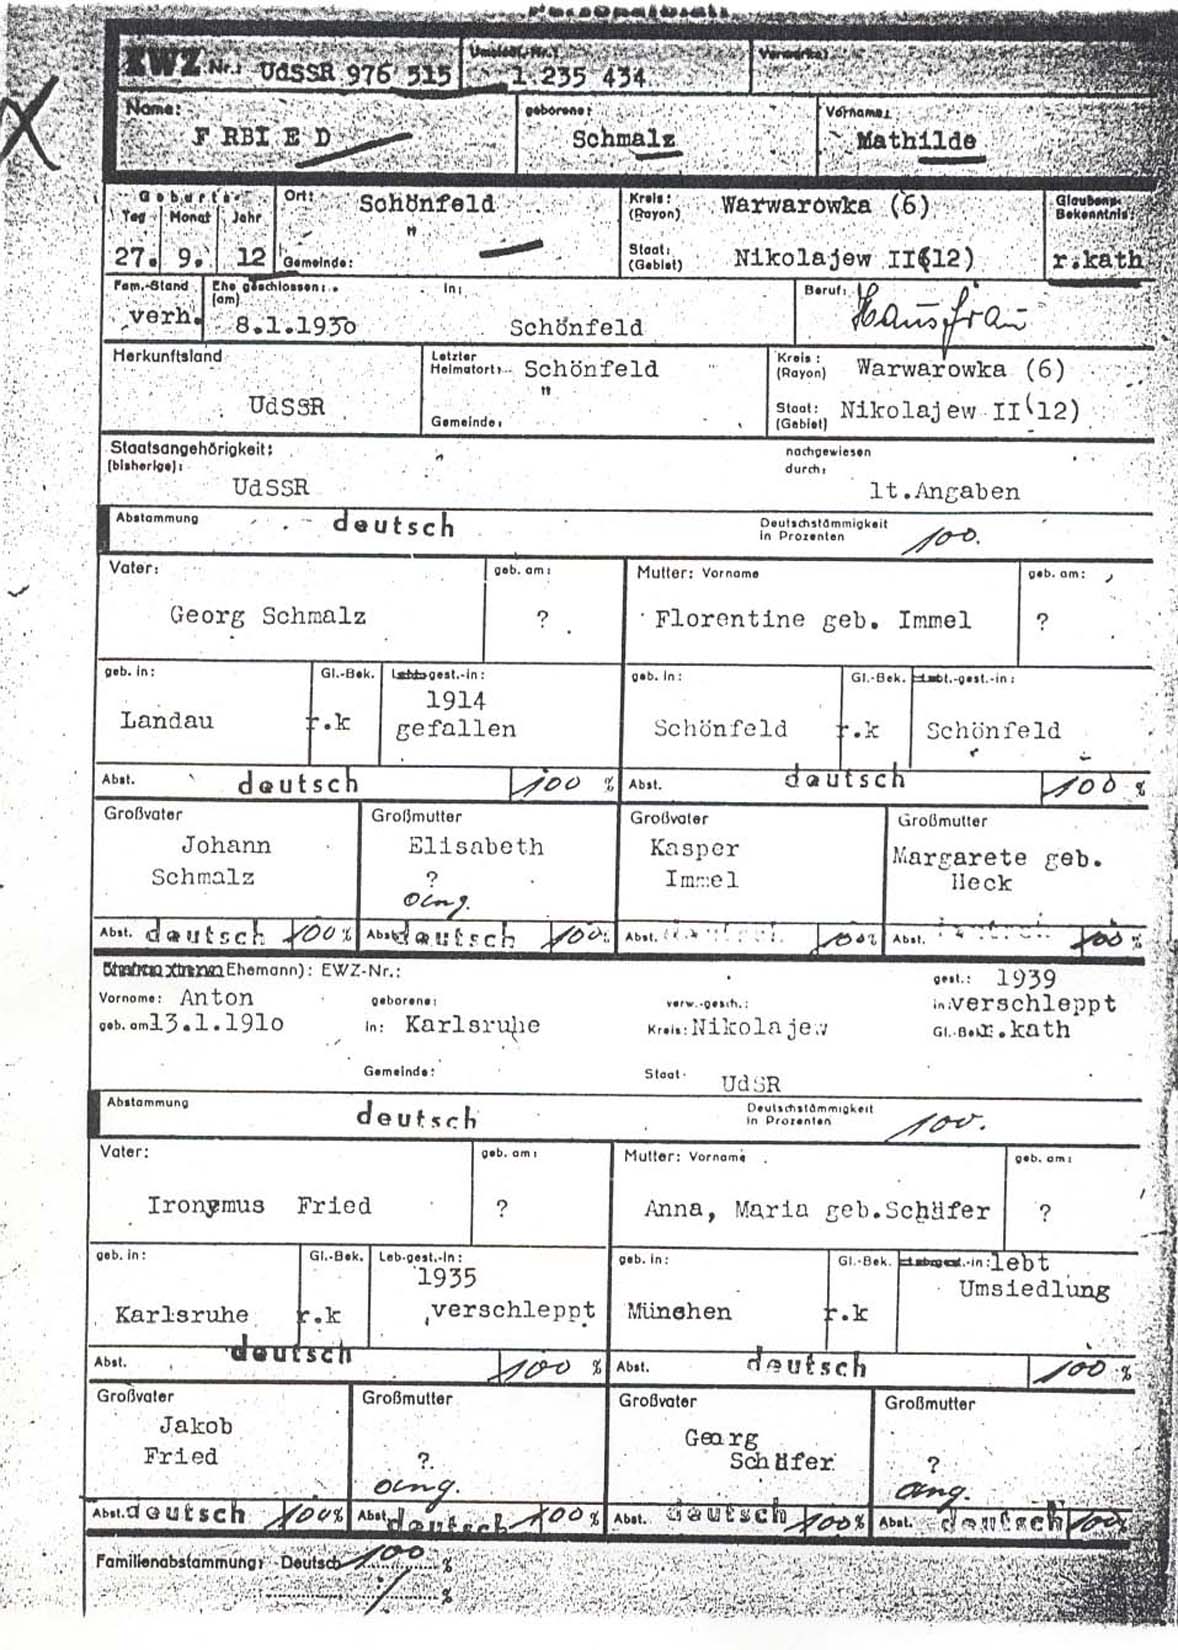 Personalblatt
EWZ Nr.: UdSSR 976 515 Umsiedl.-Nr.: 1.235 434 Vermerke:
Name: geborene: Vorname:
F RBI E D Schmalz Mathilde
Geburts- Ort: Schönfeld Kreis: (Rayon) Warwarowka (6) Glaubens-Bekenntnis:
Tag Monat Jahr "
27. 9. 12 Gemeinde: Staat: (Gebiet) Nikolajew II(12) r.kath
Fam.-Stand Ehe geschlossen: (am) in: Beruf: Hausfrau
verh. 8.1.1930 Schönfeld
Herkunftsland Letzter Heimatort: Schönfeld Kreis: (Rayon) Warwarowka (6)
UdSSR " Staat: (Gebiet) Nikolajew II(12)
Gemeinde:
Staatsangehörigkeit: nachgewiesen
(bisherige): durch:
UdSSR lt.Angaben
Abstammung deutsch Deutschstämmigkeit in Prozenten 100.
Vater: geb. am: Mutter: Vorname geb. am:
Georg Schmalz ? Florentine geb. Immel ?
geb. in: Gl.-Bek. gest.-in: geb. in: Gl.-Bek. Lebt.-gest.-in:
1914
Landau r.k gefallen Schönfeld r.k Schönfeld
Abst. deutsch 100 % Abst. deutsch 100 %
Großvater Großmutter Großvater Großmutter
Johann Elisabeth Kasper Margarete geb.
Schmalz ? Immel Heck
ang.
Abst. deutsch 100% Abst. deutsch 100% Abst. deutsch 100% Abst. deutsch 100 %
Ehemann): EWZ-Nr.: gest.: 1939
Vorname: Anton geborene: verw.-gesch.: in: verschleppt
geb. am 13.1.1910 in: Karlsruhe Kreis: Nikolajew Gl.-Bek. r.kath
Gemeinde: Staat: UdSR
Abstammung deutsch Deutschstämmigkeit in Prozenten 100.
Vater: geb. am: Mutter: Vorname geb. am:
Ironymus Fried ? Anna, Maria geb.Schäfer ?
geb. in: Gl.-Bek. Leb-gest.-in: geb. in: Gl.-Bek. gest.-in: lebt
1935 Umsiedlung
Karlsruhe r.k verschleppt München r.k
Abst. deutsch 100 % Abst. deutsch 100 %
Großvater Großmutter Großvater Großmutter
Jakob Georg
Fried ? Schäfer ?
ang. ang.
Abst. deutsch 100% Abst. deutsch 100% Abst. deutsch 100% Abst. deutsch 100%
Familienabstammung: Deutsch 100 %
%